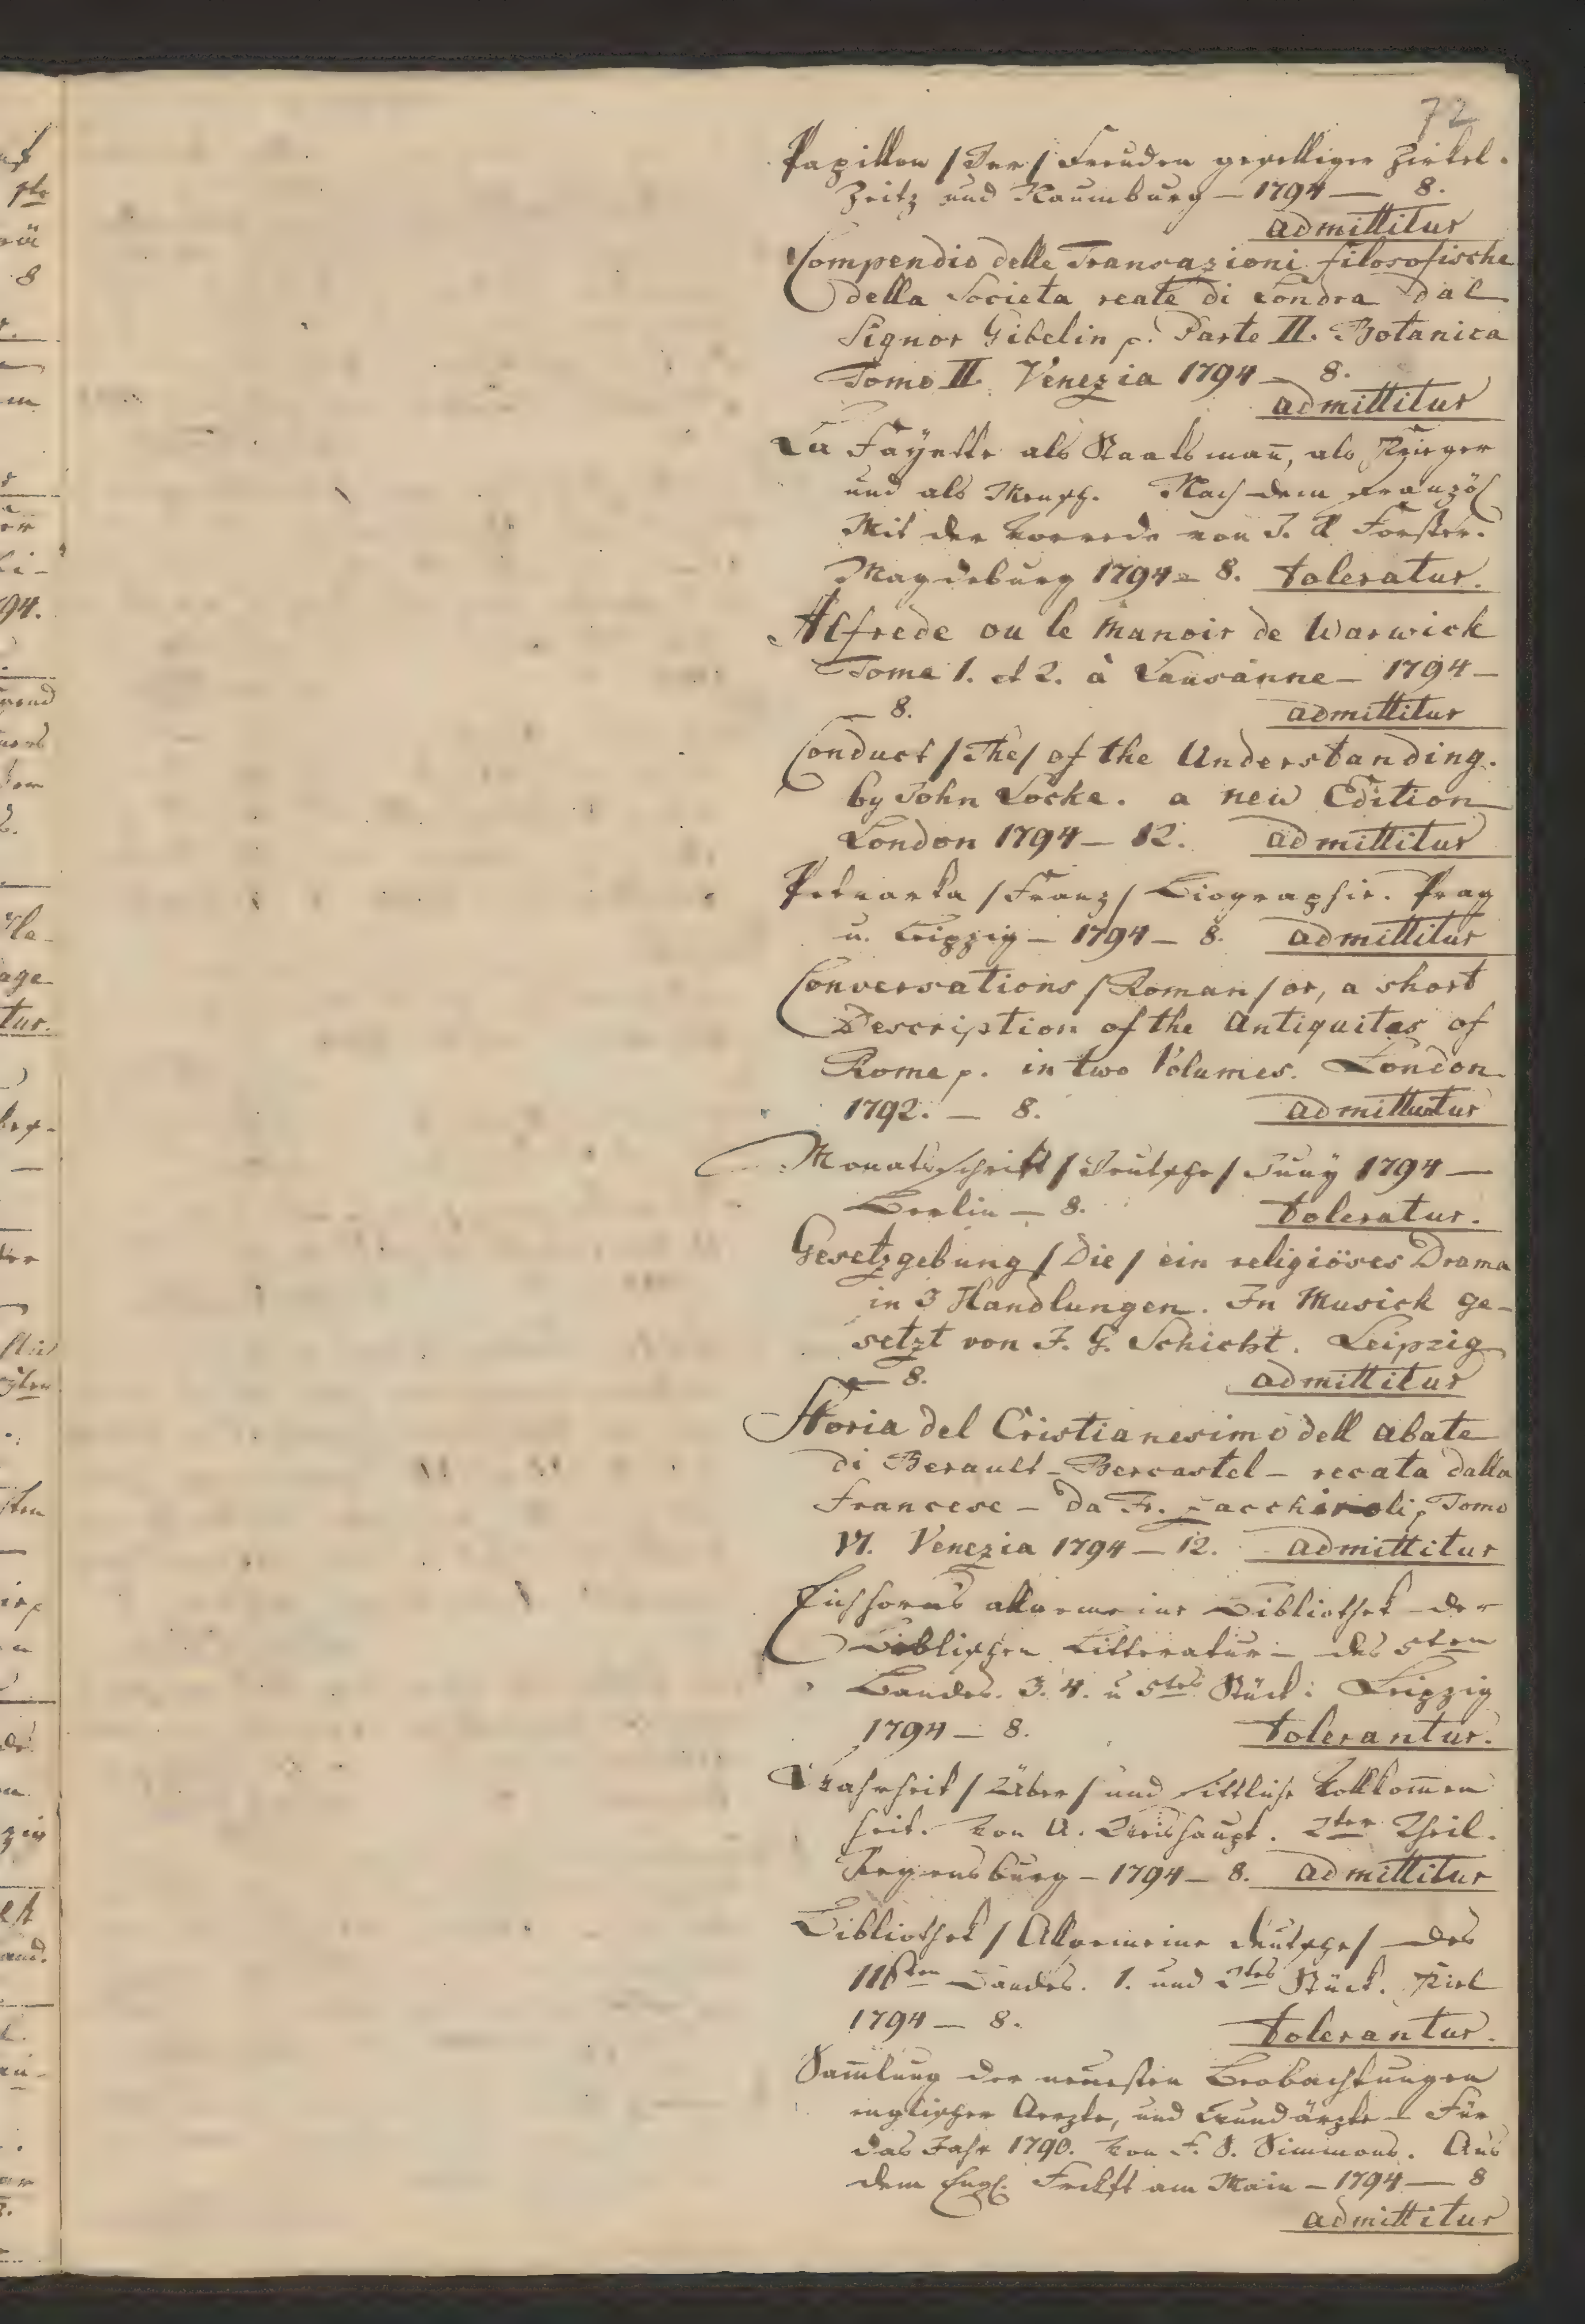 72
Papillon /Der/ Freuden geselliger Zirkel.
Zeitz und Naumburg – 1794 — 8.
admittitur
Compendio delle Transazioni filosofische
della Societa reale di Londra dal
Signor Gibelin p. Parte II. Botanica
Tomo II. Venezia 1794 – 8.
admittitur
La Fayette als Staatsmañ, als Krieger
und als Mensch. Nach dem Französ
Mit der Vorrede von J. R Forster.
Magdeburg 1794 – 8. toleratur.
Alfrede ou le Manoir de Warwick
Tome 1. et 2. à Lausanne – 1794 –
– 8. admittitur
Conduct /The/ of the Understanding.
by John Locke. a new Edition
London 1794 – 12. admittitur
Petrarka /Franz/ Biographie. Prag
u. Leipzig – 1794 – 8. admittitur
Conversations /Roman/ or, a short
Description of the Antiquites of
Rome p. in two Volumes. London
1792. – 8. admittuntur
Monatsschrift /Deutsche/ Juny 1794 —
Berlin — 8. toleratur.
Gesetzgebung /Die/ ein religiöses Drama
in 3 Handlungen. In Musick ge-
setzt von J. G. Schicht. Leipzig
– 8. admittitur
Storia del Cristianesimo dell abate
di Berault-Bercastel – recata dalla
francese – da Fr. Zacchiroli p Tomo
VI. Venezia 1794 – 12. admittitur
Eichhorns allgemeine Bibliothek der
Biblischen Litteratur – des 5ten
Bandes. 3. 4. u 5tes Stück. Leipzig
1794 – 8. tolerantur.
Wahrheit /Über/ und sittliche Vollkom̄en
heit. Von A. Weishaupt. 2ter Theil.
Regensburg – 1794 – 8. admittitur
Bibliothek /Allgemeine deutsche/ des
116ten Bandes. 1. und 2tes Stück. Kiel
1794 – 8. tolerantur.
Sam̄lung der neuesten Beobachtungen
englischer Aerzte, und Wundärzte – Für
das Jahr 1790. Von F. S. Simmons. Aus
dem Engl. Frckft am Main – 1794 — 8
admittitur